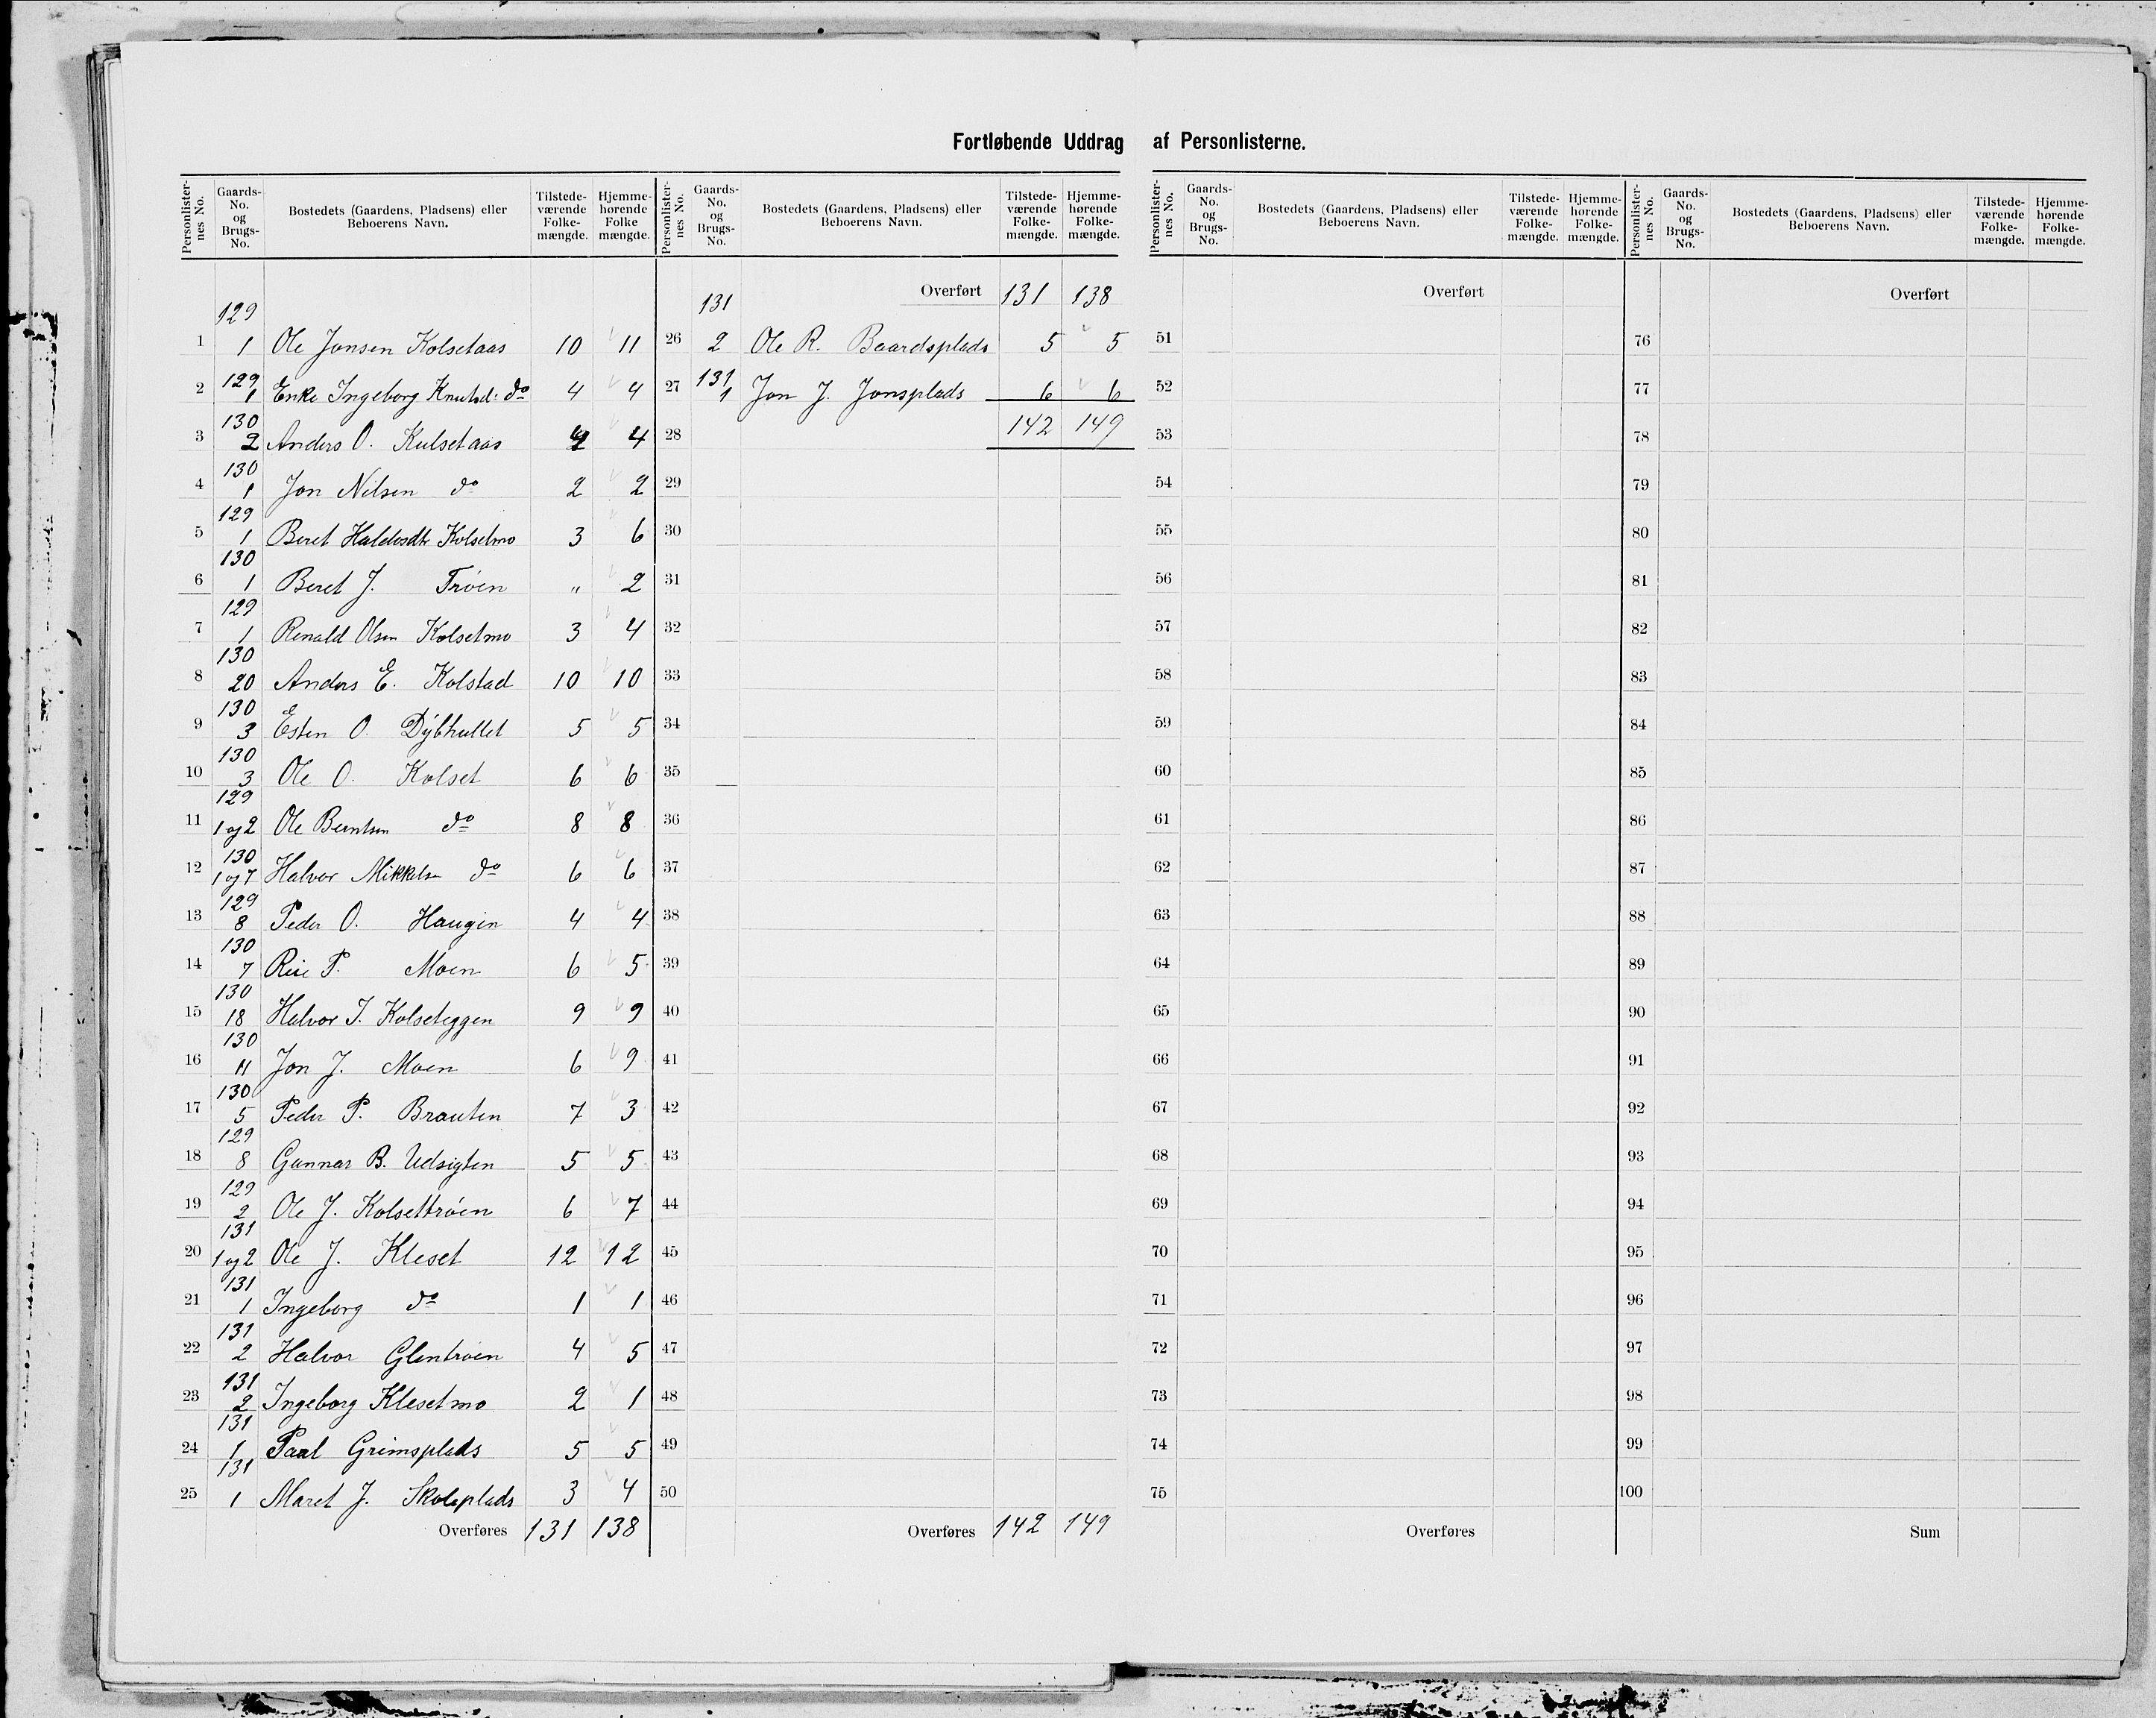 Fortløbende Uddrag af Personlisterne.
Personlister-nes No. Gaards-No. og Brugs-No. Bostedets (Gaardens, Pladsens) eller Beboerens Navn. Tilstede-værende Folke-mængde. Hjemme-hørende Folke mængde.
129
1 1 Ole Jonsen Kolsetaas 10 11
2 129 1 Enke Ingeborg Knutsd: do 4 4
3 130 2 Anders O. Kulsetaas 4 4
4 130 1 Jon Nilsen do 2 2
5 129 1 Beret Haldosdtr Kolsetmo 3 6
6 130 1 Beret J. Trøen " 2
7 129 1 Renald Olsen Kolsetmo 3 4
8 130 20 Anders E. Kolstad 10 10
9 130 3 Esten O. Dybhullet 5 5
10 130 3 Ole O. Kolset 6 6
11 129 1 og 2 Ole Berntsen do 8 8
12 130 1 og 7 Halvor Mikkelsn do 6 6
13 129 8 Peder O. Haugen 4 4
14 130 7 P. Moen 6 5
15 130 18 Halvor J. Kolseteggen 9 9
16 130 11 Jon J. Moen 6 9
17 130 5 Peder P. Brauten 7 3
18 129 8 Gunnar B. Udsigten 5 5
19 129 2 Ole J. Kolsettrøen 6 7
20 131 1 og 2 Ole J. Kleset 12 12
21 131 1 Ingeborg do 1 1
22 131 2 Halvor Glentrøen 4 5
23 131 2 Ingeborg Klesetmo 2 1
24 131 1 Paal Grimsplads 5 5
25 131 1 Maret J. Skoleplads 3 4
Overføres 131 138
Personlister-nes No. Gaards-No. og Brugs-No. Bostedets (Gaardens, Pladsens) eller Beboerens Navn. Tilstede-værende Folke-mængde. Hjemme-hørende Folke-mængde.
Overført 131 138
26 131 2 Ole R. Baardsplads 5 5
27 131 1 Jon J. Jonsplads 6 6
28 142 149
29
30
31
32
33
34
35
36
37
38
39
40
41
42
43
44
45
46
47
48
49
50
Overføres 142 149
Personlister-nes No. Gaards-No. og Brugs-No. Bostedets (Gaardens, Pladsens) eller Beboerens Navn. Tilstede-værende Folke-mængde. Hjemme-hørende Folke-mængde.
Overført
51
52
53
54
55
56
57
58
59
60
61
62
63
64
65
66
67
68
69
70
71
72
73
74
75
Overføres
Personlister-nes No. Gaards-No. og Brugs-No. Bostedets (Gaardens, Pladsens) eller Beboerens Navn. Tilstede-værende Folke-mængde. Hjemme-hørende Folke-mængde.
Overført
76
77
78
79
80
81
82
83
84
85
86
87
88
89
90
91
92
93
94
95
96
97
98
99
100
Sum